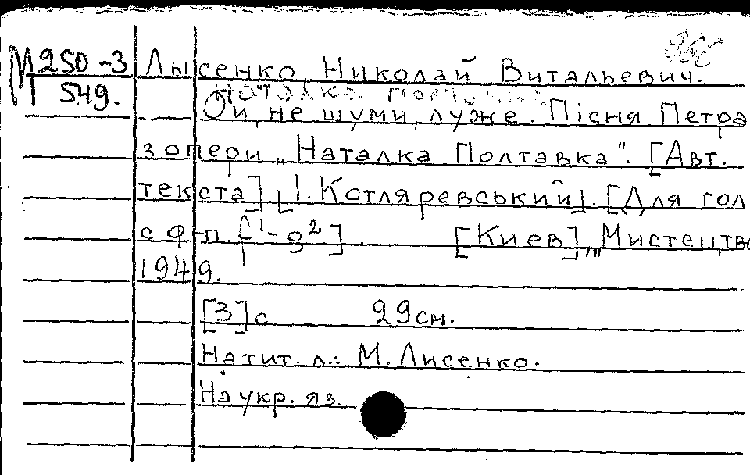 М 250-3 Лысенко, Николай Витальевич.
549.
Ой, не шуми, луже. Пісня Петра
з опери "Наталка Полтавка". [Авт.
текста] [І. Котляревський]. [Для гол.
с ф-п.] [Киев], "Мистецтво
1949.
[3] с 29 см.
На тит. л.: М. Лисенко.
На укр. яз.